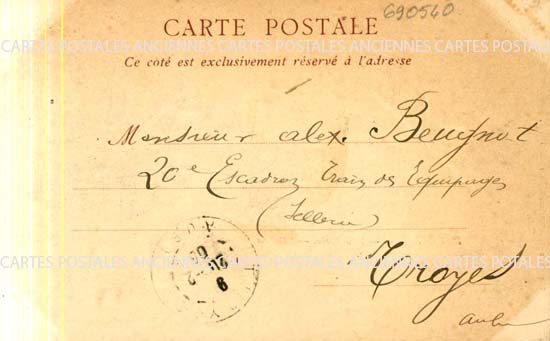 690540
CARTE POSTALE
CARTES POSTALES ANCIENNES CARTES POSTALES ANCIENNES CARTES POSTALES
Ce côté est exclusivement réservé à l'adresse
Monsieur Alex. Beugnot
20e Escadron Train des Équipages
(Sellerie)
CARTES POSTALES ANCIENNES CARTES POSTALES ANCIENNES CARTES POSTALES
Troyes
Aube